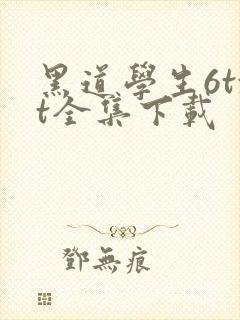 黑道學生6t
t全集下載
鄧無痕